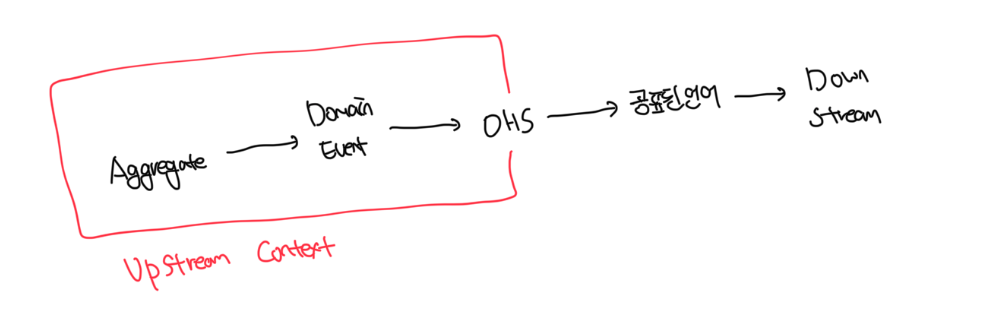 Aggregate
Domain
Event
OHS
공표된언어
Down
Stream
Upstream Context